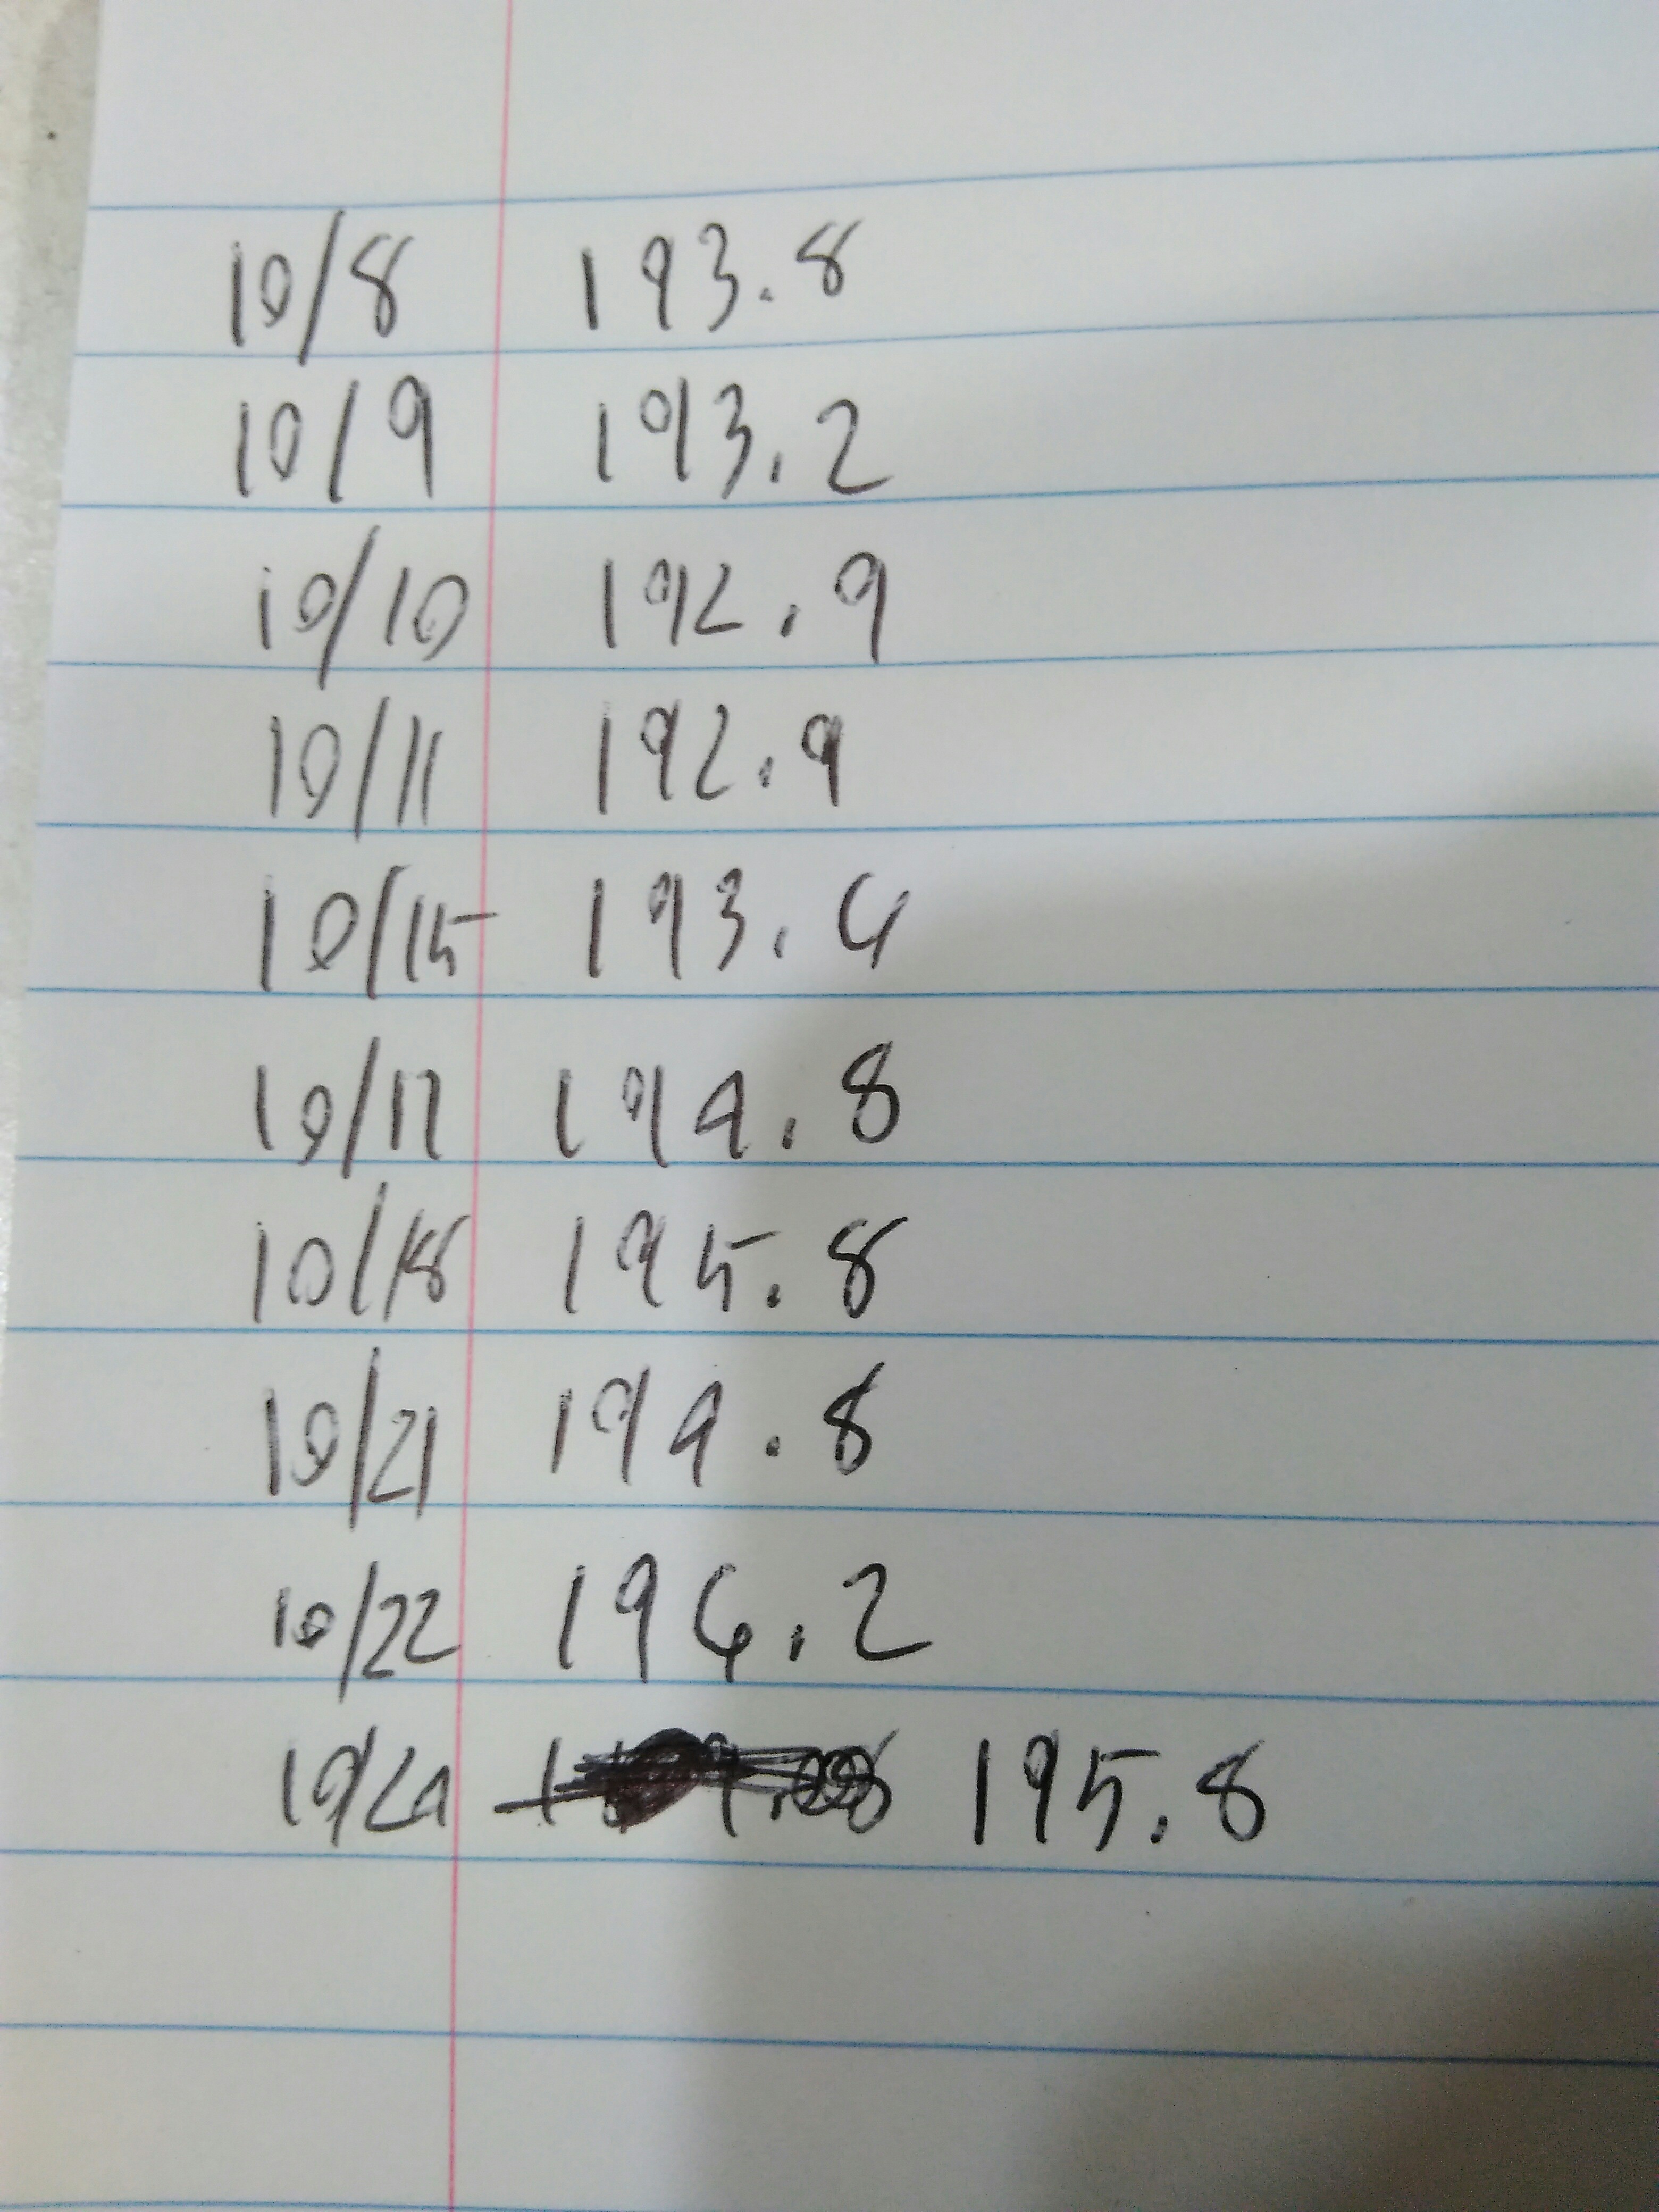 10/8 193.8
10/9 193.2
10/10 192.9
10/11 192.9
10/15 193.4
10/17 194.8
10/18 195.8
10/21 194.8
10/22 196.2
10/24 195.8